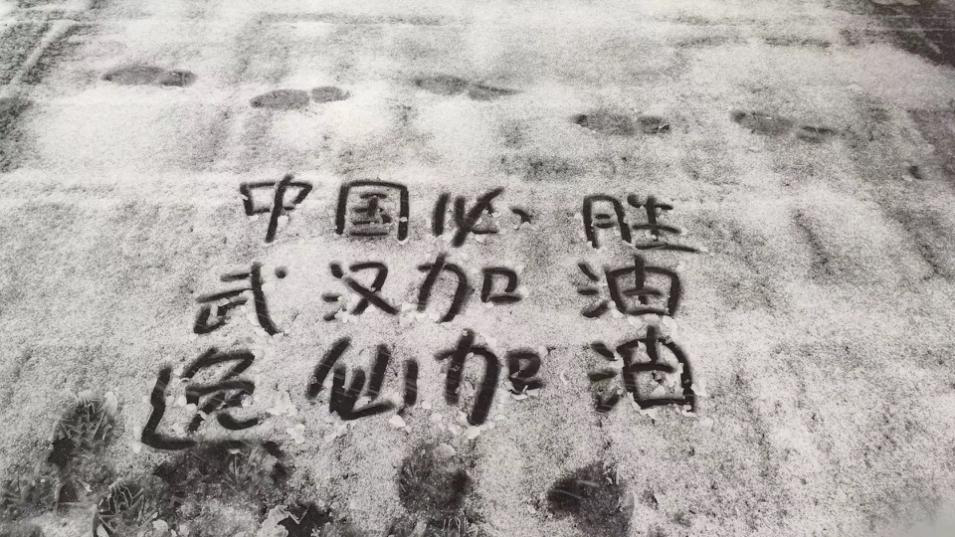 中国必胜
武汉加油
逸仙加油